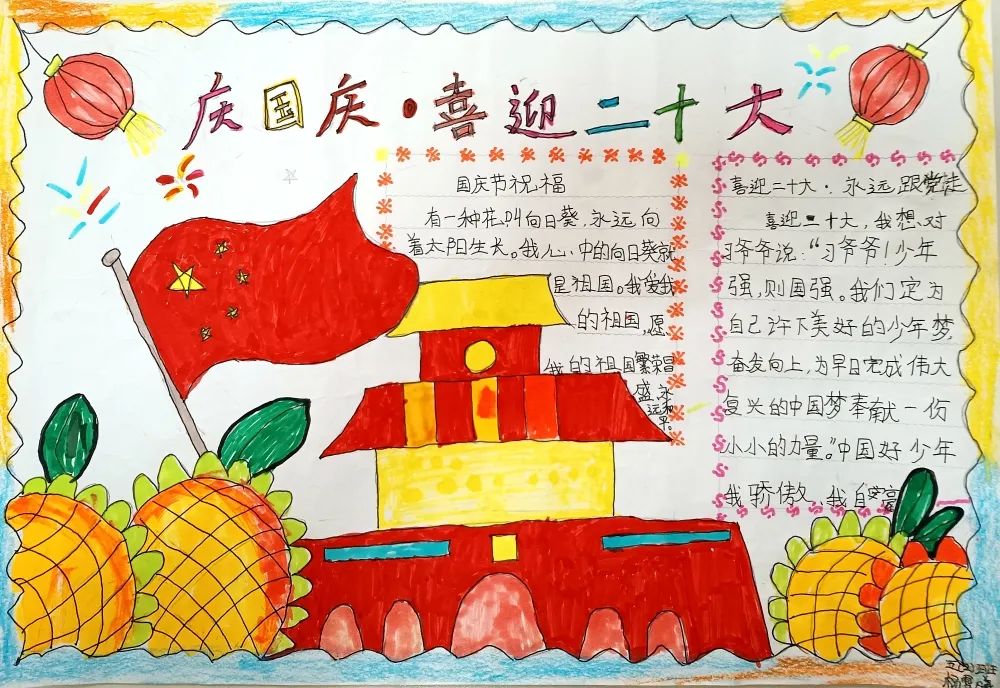 庆国庆·喜迎二十大
国庆节祝福
有一种花叫向日葵,永远向
着太阳生长。我心中的向日葵就
是祖国。我爱我
的祖国,愿
我的祖国繁荣昌
盛,永
远和
平。
喜迎二十大·永远跟党走
喜迎二十大,我想对
习爷爷说:“习爷爷!少年
强,则国强。我们定为
自己许下美好的少年梦
奋发向上,为早日完成伟大
复兴的中国梦奉献一份
小小的力量。”中国好少年
我骄傲、我自豪